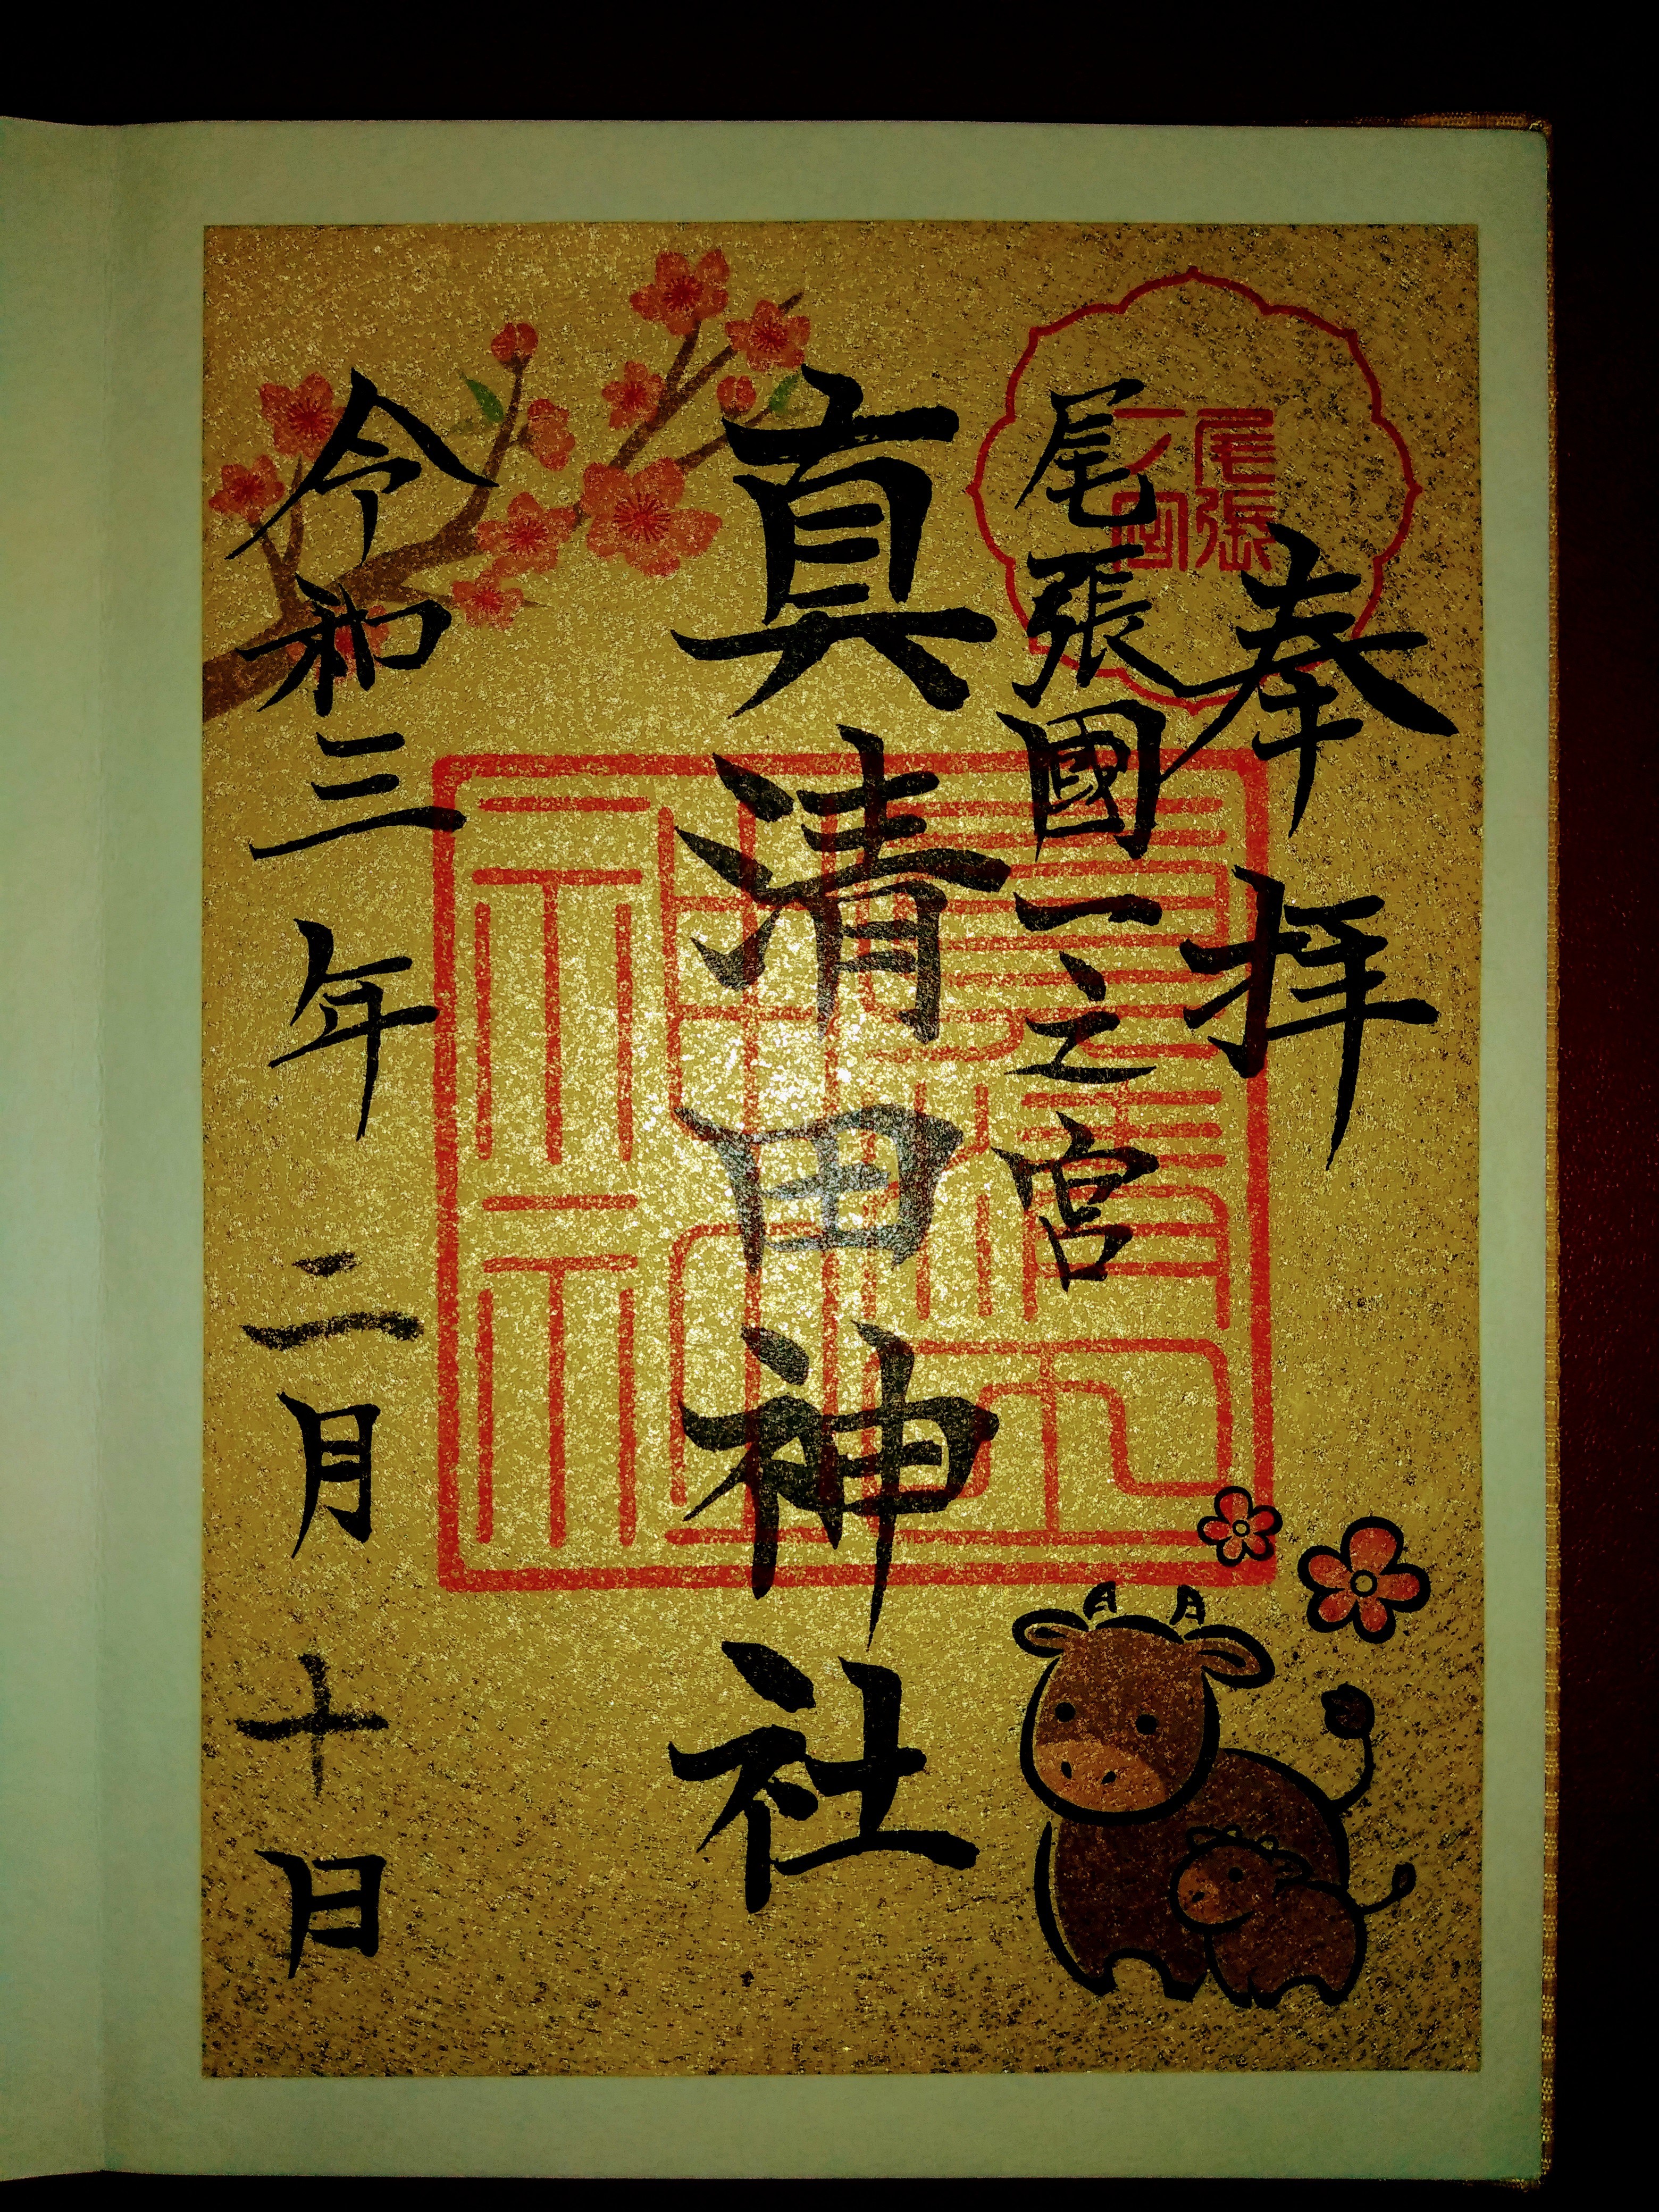 奉拝
尾張
一宮
尾張國一之宮
真清田神社
真清田
神社
令和三年二月十日